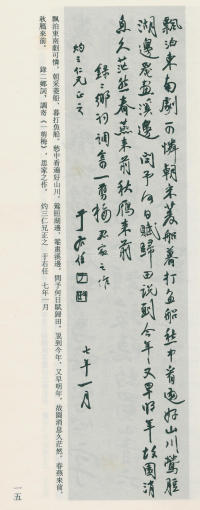 飄泊東南劇可憐朝采菱船暮打魚船愁中看遍好山川鶯脰
湖邊罨畫溪邊 問予何日賦歸田說到今年又早明年故園消
息久茫然春燕來前秋雁來前
錄二鄉詞調寄一剪梅思家之作
灼三仁兄正之 于右任
七年一月
飄泊東南劇可憐,朝采菱船、暮打魚船。愁中看遍好山川。鶯脰湖邊、罨畫溪邊。問予何日賦歸田,說到今年、又早明年。故園消息久茫然,春燕來前、
秋雁來前。 錄二鄉詞,調寄《一剪梅》,思家之作。 灼三仁兄正之 于右任 七年一月
一五